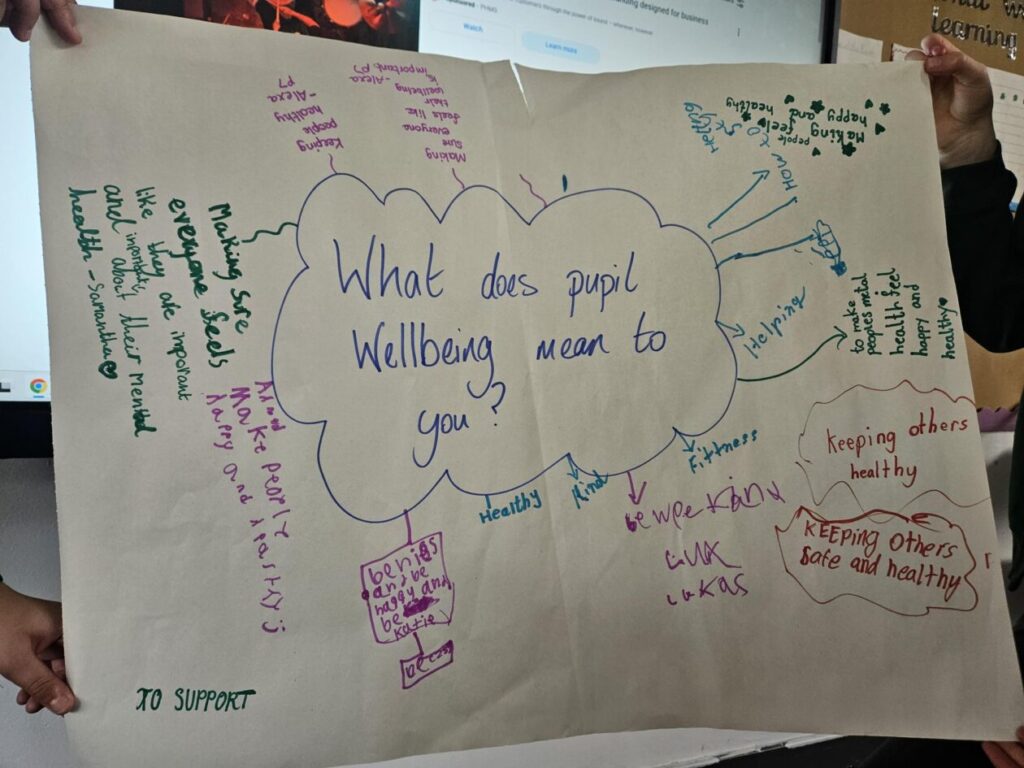 Sponsored
Watch
Learn more
learning
What does pupil
Wellbeing mean to
you?
Keeping
people
healthy
-Alexa
P7
Making
sure
everyone
feels like
their
wellbeing
is
important. -Alexa
P7
Helping
How to
Making
pepole feel
happy and
healthy
Helping
to make
peoples metal
health feel
happy and
healthy
Keeping others
healthy
KEEPING OTHERS
Safe and healthy
Fittness
Kind
Healthy
be
Kind
LuKas
be
and be
happy and
be
Katie
Making Sure
everyone feels
like they are important
and about their mental
health - Samantha
Make
happy and
TO SUPPORT